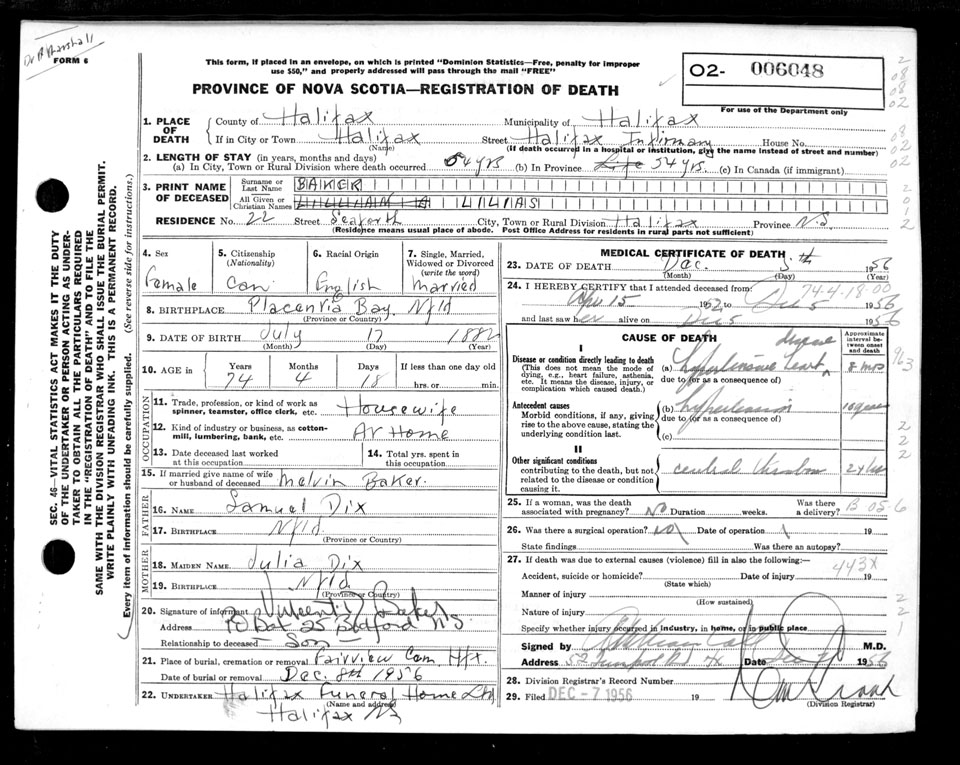 Dr A Marshall
FORM 6
This form, if placed in an envelope, on which is printed "Dominion Statistics—Free, penalty for improper
use $50," and properly addressed will pass through the mail "FREE"
PROVINCE OF NOVA SCOTIA—REGISTRATION OF DEATH
O2- 006048
For use of the Department only
1. PLACE OF DEATH
County of Halifax Municipality of Halifax
If in City or Town Halifax Street Halifax Infirmary House No.
(Name) (If death occurred in a hospital or institution, give the name instead of street and number)
2. LENGTH OF STAY (in years, months and days)
(a) In City, Town or Rural Division where death occurred 54 yrs (b) In Province Life 54 yrs. (c) In Canada (if immigrant)
3. PRINT NAME OF DECEASED
Surname or Last Name BAKER
All Given or Christian Names LILLIAM LILIAS
RESIDENCE No. 22 Street Seaforth City, Town or Rural Division Halifax Province N.S.
(Residence means usual place of abode. Post Office Address for residents in rural parts not sufficient)
SEC. 46—VITAL STATISTICS ACT MAKES IT THE DUTY
OF THE UNDERTAKER OR PERSON ACTING AS UNDER-
TAKER TO OBTAIN ALL THE PARTICULARS REQUIRED
IN THE "REGISTRATION OF DEATH" AND TO FILE THE
SAME WITH THE DIVISION REGISTRAR WHO SHALL ISSUE THE BURIAL PERMIT.
WRITE PLAINLY WITH UNFADING INK. THIS IS A PERMANENT RECORD.
Every item of information should be carefully supplied. (See reverse side for instructions.)
4. Sex Female
5. Citizenship (Nationality) Can
6. Racial Origin English
7. Single, Married, Widowed or Divorced (write the word) Married
8. BIRTHPLACE Placentia Bay. Nfld
(Province or Country)
9. DATE OF BIRTH July 17 1882
(Month) (Day) (Year)
10. AGE in Years Months Days If less than one day old
74 4 18 hrs. or min.
OCCUPATION
11. Trade, profession, or kind of work as
spinner, teamster, office clerk, etc. Housewife
12. Kind of industry or business, as cotton-
mill, lumbering, bank, etc. At Home
13. Date deceased last worked
at this occupation
14. Total yrs. spent in
this occupation
15. If married give name of wife
or husband of deceased Melvin Baker.
FATHER
16. NAME Samuel Dix
17. BIRTHPLACE Nfld
(Province or Country)
MOTHER
18. MAIDEN NAME Julia Dix
19. BIRTHPLACE Nfld
(Province or Country)
20. Signature of informant Vincent Baker
Address PO Box 25 Bedford N.S.
Relationship to deceased Son
21. Place of burial, cremation or removal Fairview Cem. Hfx.
Date of burial or removal Dec. 8th 1956
22. UNDERTAKER Halifax Funeral Home Ltd
(Name and address)
Halifax NS
MEDICAL CERTIFICATE OF DEATH
23. DATE OF DEATH Dec. 5th 1956
(Month) (Day) (Year)
74-4-18-00
24. I HEREBY CERTIFY that I attended deceased from:
Apr 15 1952 to Dec 5 1956
and last saw her alive on Dec 5 1956
CAUSE OF DEATH
Approximate interval between onset and death
I
Disease or condition directly leading to death
(This does not mean the mode of
dying, e.g., heart failure, asthenia,
etc. It means the disease, injury, or
complication which caused death.)
(a) hypertensive heart disease 8 mos
due to (or as a consequence of)
Antecedent causes
Morbid conditions, if any, giving
rise to the above cause, stating the
underlying condition last.
(b) hypertension 10 years
due to (or as a consequence of)
(c)
II
Other significant conditions
contributing to the death, but not
related to the disease or condition
causing it.
25. If a woman, was the death
associated with pregnancy? NO Duration weeks. Was there a delivery?
B 05-6
26. Was there a surgical operation? no Date of operation 19
State findings Was there an autopsy?
27. If death was due to external causes (violence) fill in also the following:—
443X
Accident, suicide or homicide? Date of injury 19
(State which)
Manner of injury
(How sustained)
Nature of injury
Specify whether injury occurred in industry, in home, or in public place
Signed by M.D.
Address Date Dec 7 1956
28. Division Registrar's Record Number
29. Filed DEC -7 1956 19
(Division Registrar)